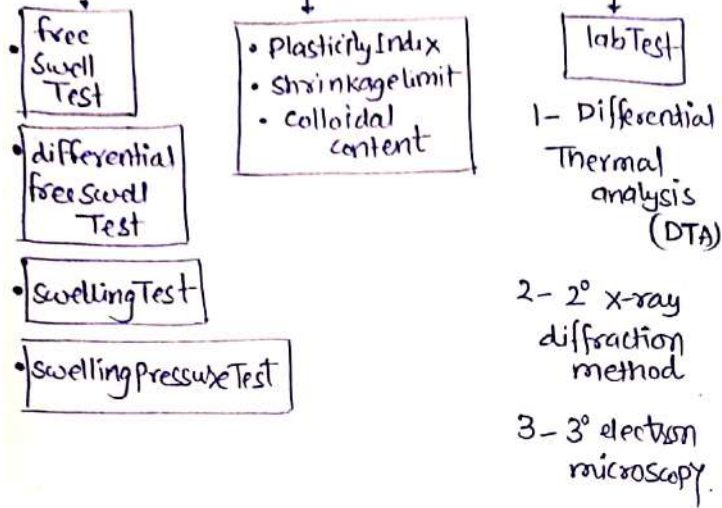 • free
Swell
Test
• differential
free swell
Test
• swelling Test
• swelling pressure Test
• Plasticity Index
• Shrinkage limit
• colloidal
content
lab Test
1- Differential
Thermal
analysis
(DTA)
2- 2° x-ray
diffraction
method
3- 3° electron
microscopy.